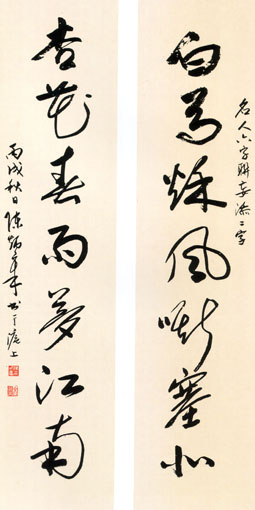 白马秋风嘶塞北
名人六字联妄添二字
杏花春雨梦江南
丙戌秋日陈炳昶书于沪上